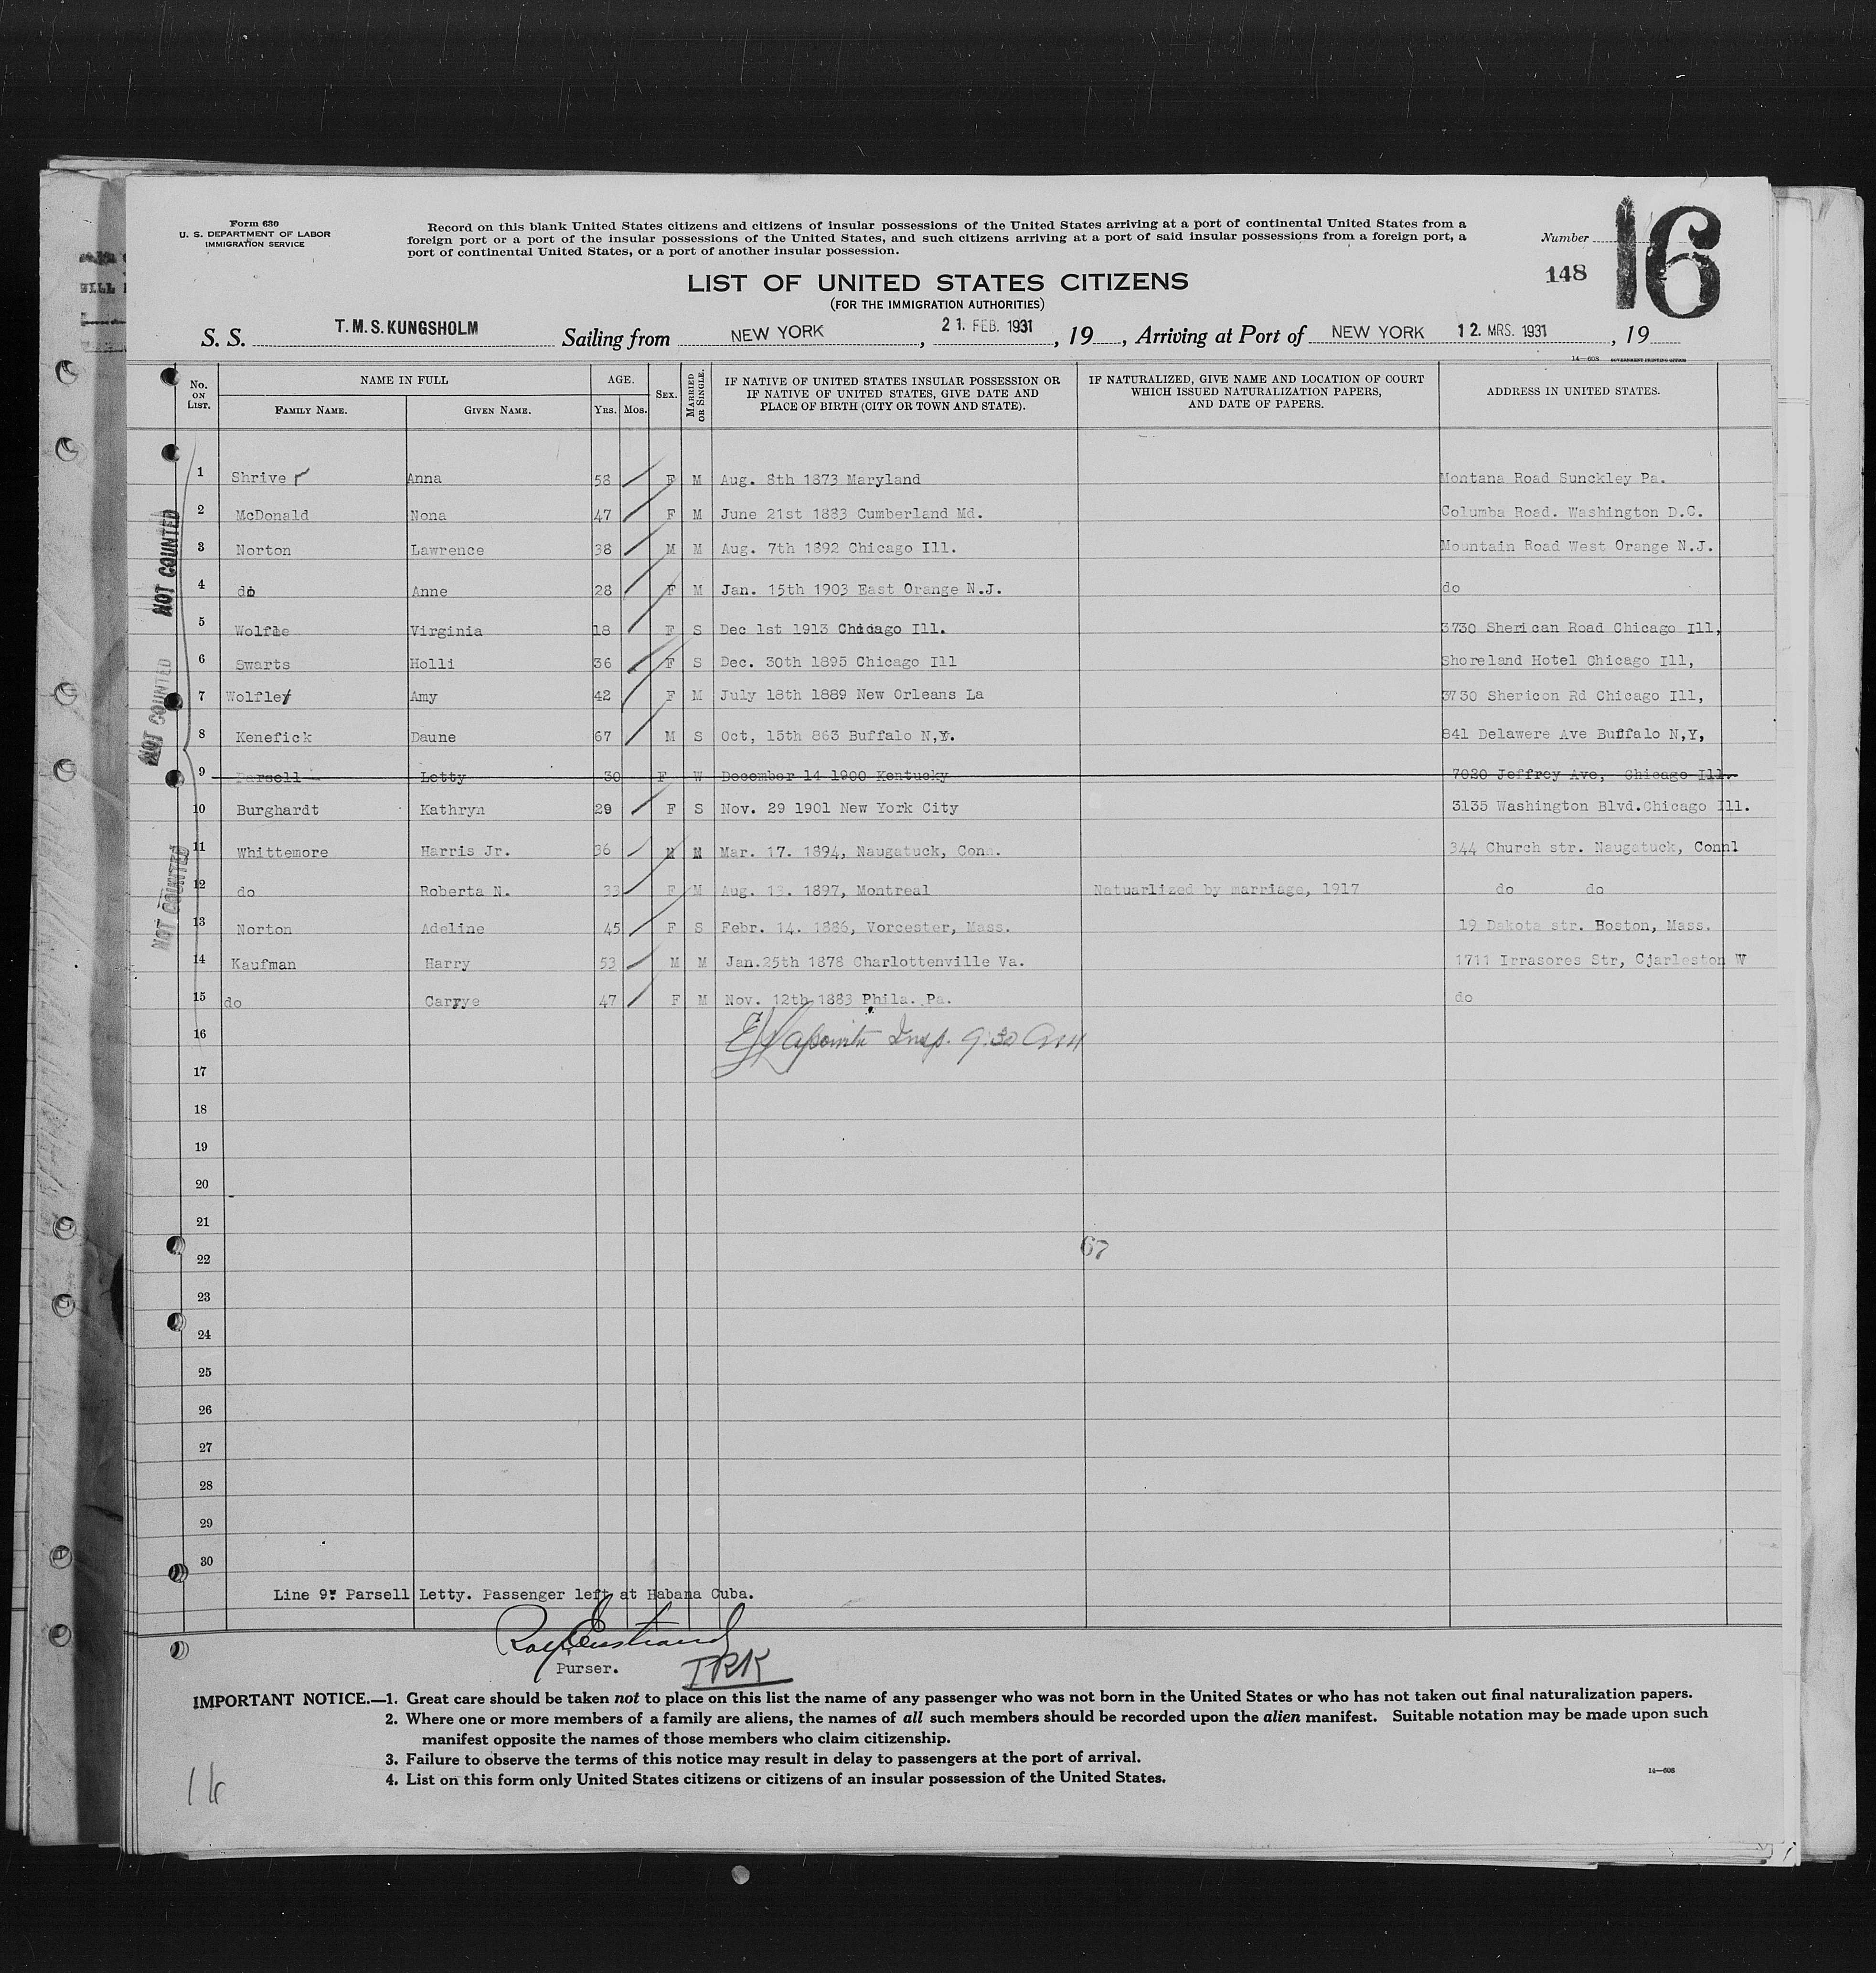 Form 630
U. S. DEPARTMENT OF LABOR
IMMIGRATION SERVICE
Record on this blank United States citizens and citizens of insular possessions of the United States arriving at a port of continental United States from a
foreign port or a port of the insular possessions of the United States, and such citizens arriving at a port of said insular possessions from a foreign port, a
port of continental United States, or a port of another insular possession.
Number
16
148
LIST OF UNITED STATES CITIZENS
(FOR THE IMMIGRATION AUTHORITIES)
S. S. T.M.S.KUNGSHOLM Sailing from NEW YORK, 21. FEB. 1931, 19, Arriving at Port of NEW YORK 12. MRS. 1931, 19
14—608 GOVERNMENT PRINTING OFFICE
No. ON LIST. NAME IN FULL FAMILY NAME. GIVEN NAME. AGE. YRS. MOS. SEX. MARRIED OR SINGLE. IF NATIVE OF UNITED STATES INSULAR POSSESSION OR IF NATIVE OF UNITED STATES, GIVE DATE AND PLACE OF BIRTH (CITY OR TOWN AND STATE). IF NATURALIZED, GIVE NAME AND LOCATION OF COURT WHICH ISSUED NATURALIZATION PAPERS, AND DATE OF PAPERS. ADDRESS IN UNITED STATES.
NOT COUNTED
NOT COUNTED
NOT COUNTED
1 Shriver Anna 58 F M Aug. 8th 1873 Maryland Montana Road Sunckley Pa.
2 McDonald Nona 47 F M June 21st 1883 Cumberland Md. Columba Road. Washington D.C.
3 Norton Lawrence 38 M M Aug. 7th 1892 Chicago Ill. Mountain Road West Orange N.J.
4 do Anne 28 F M Jan. 15th 1903 East Orange N.J. do
5 Wolfle Virginia 18 F S Dec 1st 1913 Chicago Ill. 3730 Sherican Road Chicago Ill,
6 Swarts Holli 36 F S Dec. 30th 1895 Chicago Ill Shoreland Hotel Chicago Ill,
7 Wolfley Amy 42 F M July 18th 1889 New Orleans La 3730 Shericon Rd Chicago Ill,
8 Kenefick Daune 67 M S Oct, 15th 863 Buffalo N,Y. 841 Delawere Ave Buffalo N,Y,
9 Parsell Letty 30 F W December 14 1900 Kentucky 7020 Jeffrey Ave, Chicago Ill.
10 Burghardt Kathryn 29 F S Nov. 29 1901 New York City 3135 Washington Blvd.Chicago Ill.
11 Whittemore Harris Jr. 36 M M Mar. 17. 1894, Naugatuck, Conn. 344 Church str. Naugatuck, Connl
12 do Roberta N. 33 F M Aug. 13. 1897, Montreal Natuarlized by marriage, 1917 do do
13 Norton Adeline 45 F S Febr. 14. 1886, Vorcester, Mass. 19 Dakota str. Boston, Mass.
14 Kaufman Harry 53 M M Jan.25th 1878 Charlottenville Va. 1711 Irrasores Str, Cjarleston W
15 do Carrye 47 F M Nov. 12th 1883 Phila. Pa. do
16 Insp. 9:30 AM
17
18
19
20
21
22
67
23
24
25
26
27
28
29
30
Line 9: Parsell Letty. Passenger left at Habana Cuba.
Purser.
IRK
IMPORTANT NOTICE.—1. Great care should be taken not to place on this list the name of any passenger who was not born in the United States or who has not taken out final naturalization papers.
2. Where one or more members of a family are aliens, the names of all such members should be recorded upon the alien manifest. Suitable notation may be made upon such
manifest opposite the names of those members who claim citizenship.
3. Failure to observe the terms of this notice may result in delay to passengers at the port of arrival.
4. List on this form only United States citizens or citizens of an insular possession of the United States.
14—608